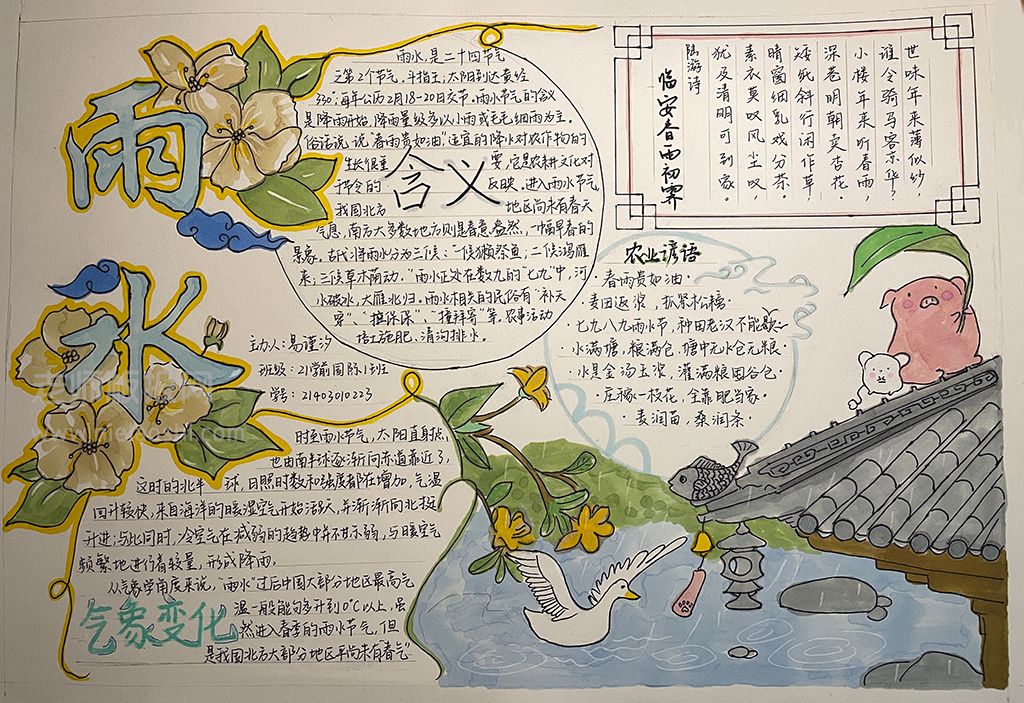 雨
水
雨水是二十四节气
之第2个节气,斗指壬;太阳到达黄经
330°;每年公历2月18-20日交节。雨水节气的含义
是降雨开始,降雨量级多以小雨或毛毛细雨为主。
俗话说,说"春雨贵如油",适宜的降水对农作物的
生长很重要,它是农耕文化对
于节令的反映,进入雨水节气
我国北方地区尚未有春天
气息,南方大多数地方则是春意盎然,一幅早春的
景象。古代将雨水分为三候:"一候獭祭鱼;二候鸿雁
来;三候草木萌动。"雨水正处在数九的"七九"中,河
水破冰,大雁北归。雨水相关的民俗有"补天
穿"、"拉保保"、"撞拜寄"等。农事活动
培土施肥、清沟排水。
含义
主办人:易谨汐
班级:21学前国际1班
学号:21403010223
陆游诗
临安春雨初霁
世味年来薄似纱,
谁令骑马客京华?
小楼年来听春雨,
深巷明朝卖杏花。
矮死斜行闲作草,
晴窗细乳戏分茶。
素衣莫叹风尘叹,
犹及清明可到家。
农业谚语
·春雨贵如油·
·麦田返浆,抓紧松耪·
·七九八九雨水节,种田老汉不能歇~
·水满塘,粮满仓,塘中无水仓无粮·
·水是金汤玉浆,灌满粮囤谷仓·
·庄稼一枝花,全靠肥当家·
·麦润苗,桑润条·
时至雨水节气,太阳直身状,
也由南半球逐渐向赤道靠近了,
这时的北半球,日照时数和强度都在增加,气温
回升较快,来自海洋的暖湿空气开始活跃,并渐渐向北挺
升进;与此同时,冷空气在减弱的趋势中并不甘示弱,与暖空气
频繁地进行着较量,形成降雨,
从气象学角度来说,"雨水"过后中国大部分地区最高气
温一般能回升到0°C以上,虽
然进入春季的雨水节气,但
是我国北方大部分地区平尚未有"春气"
气象变化